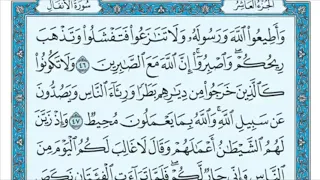 الجزء العاشر
سورة الأنفال
وَأَطِيعُوا۟ ٱللَّهَ وَرَسُولَهُۥ وَلَا تَنَٰزَعُوا۟ فَتَفْشَلُوا۟ وَتَذْهَبَ
رِيحُكُمْ ۖ وَٱصْبِرُوٓا۟ ۚ إِنَّ ٱللَّهَ مَعَ ٱلصَّٰبِرِينَ ٤٦ وَلَا تَكُونُوا۟
كَٱلَّذِينَ خَرَجُوا۟ مِن دِيَٰرِهِم بَطَرًا وَرِئَآءَ ٱلنَّاسِ وَيَصُدُّونَ
عَن سَبِيلِ ٱللَّهِ ۚ وَٱللَّهُ بِمَا يَعْمَلُونَ مُحِيطٌ ٤٧ وَإِذْ زَيَّنَ
لَهُمُ ٱلشَّيْطَٰنُ أَعْمَٰلَهُمْ وَقَالَ لَا غَالِبَ لَكُمُ ٱلْيَوْمَ مِنَ
ٱلنَّاسِ وَإِنِّى جَارٌ لَّكُمْ ۖ فَلَمَّا تَرَآءَتِ ٱلْفِئَتَانِ نَكَصَ